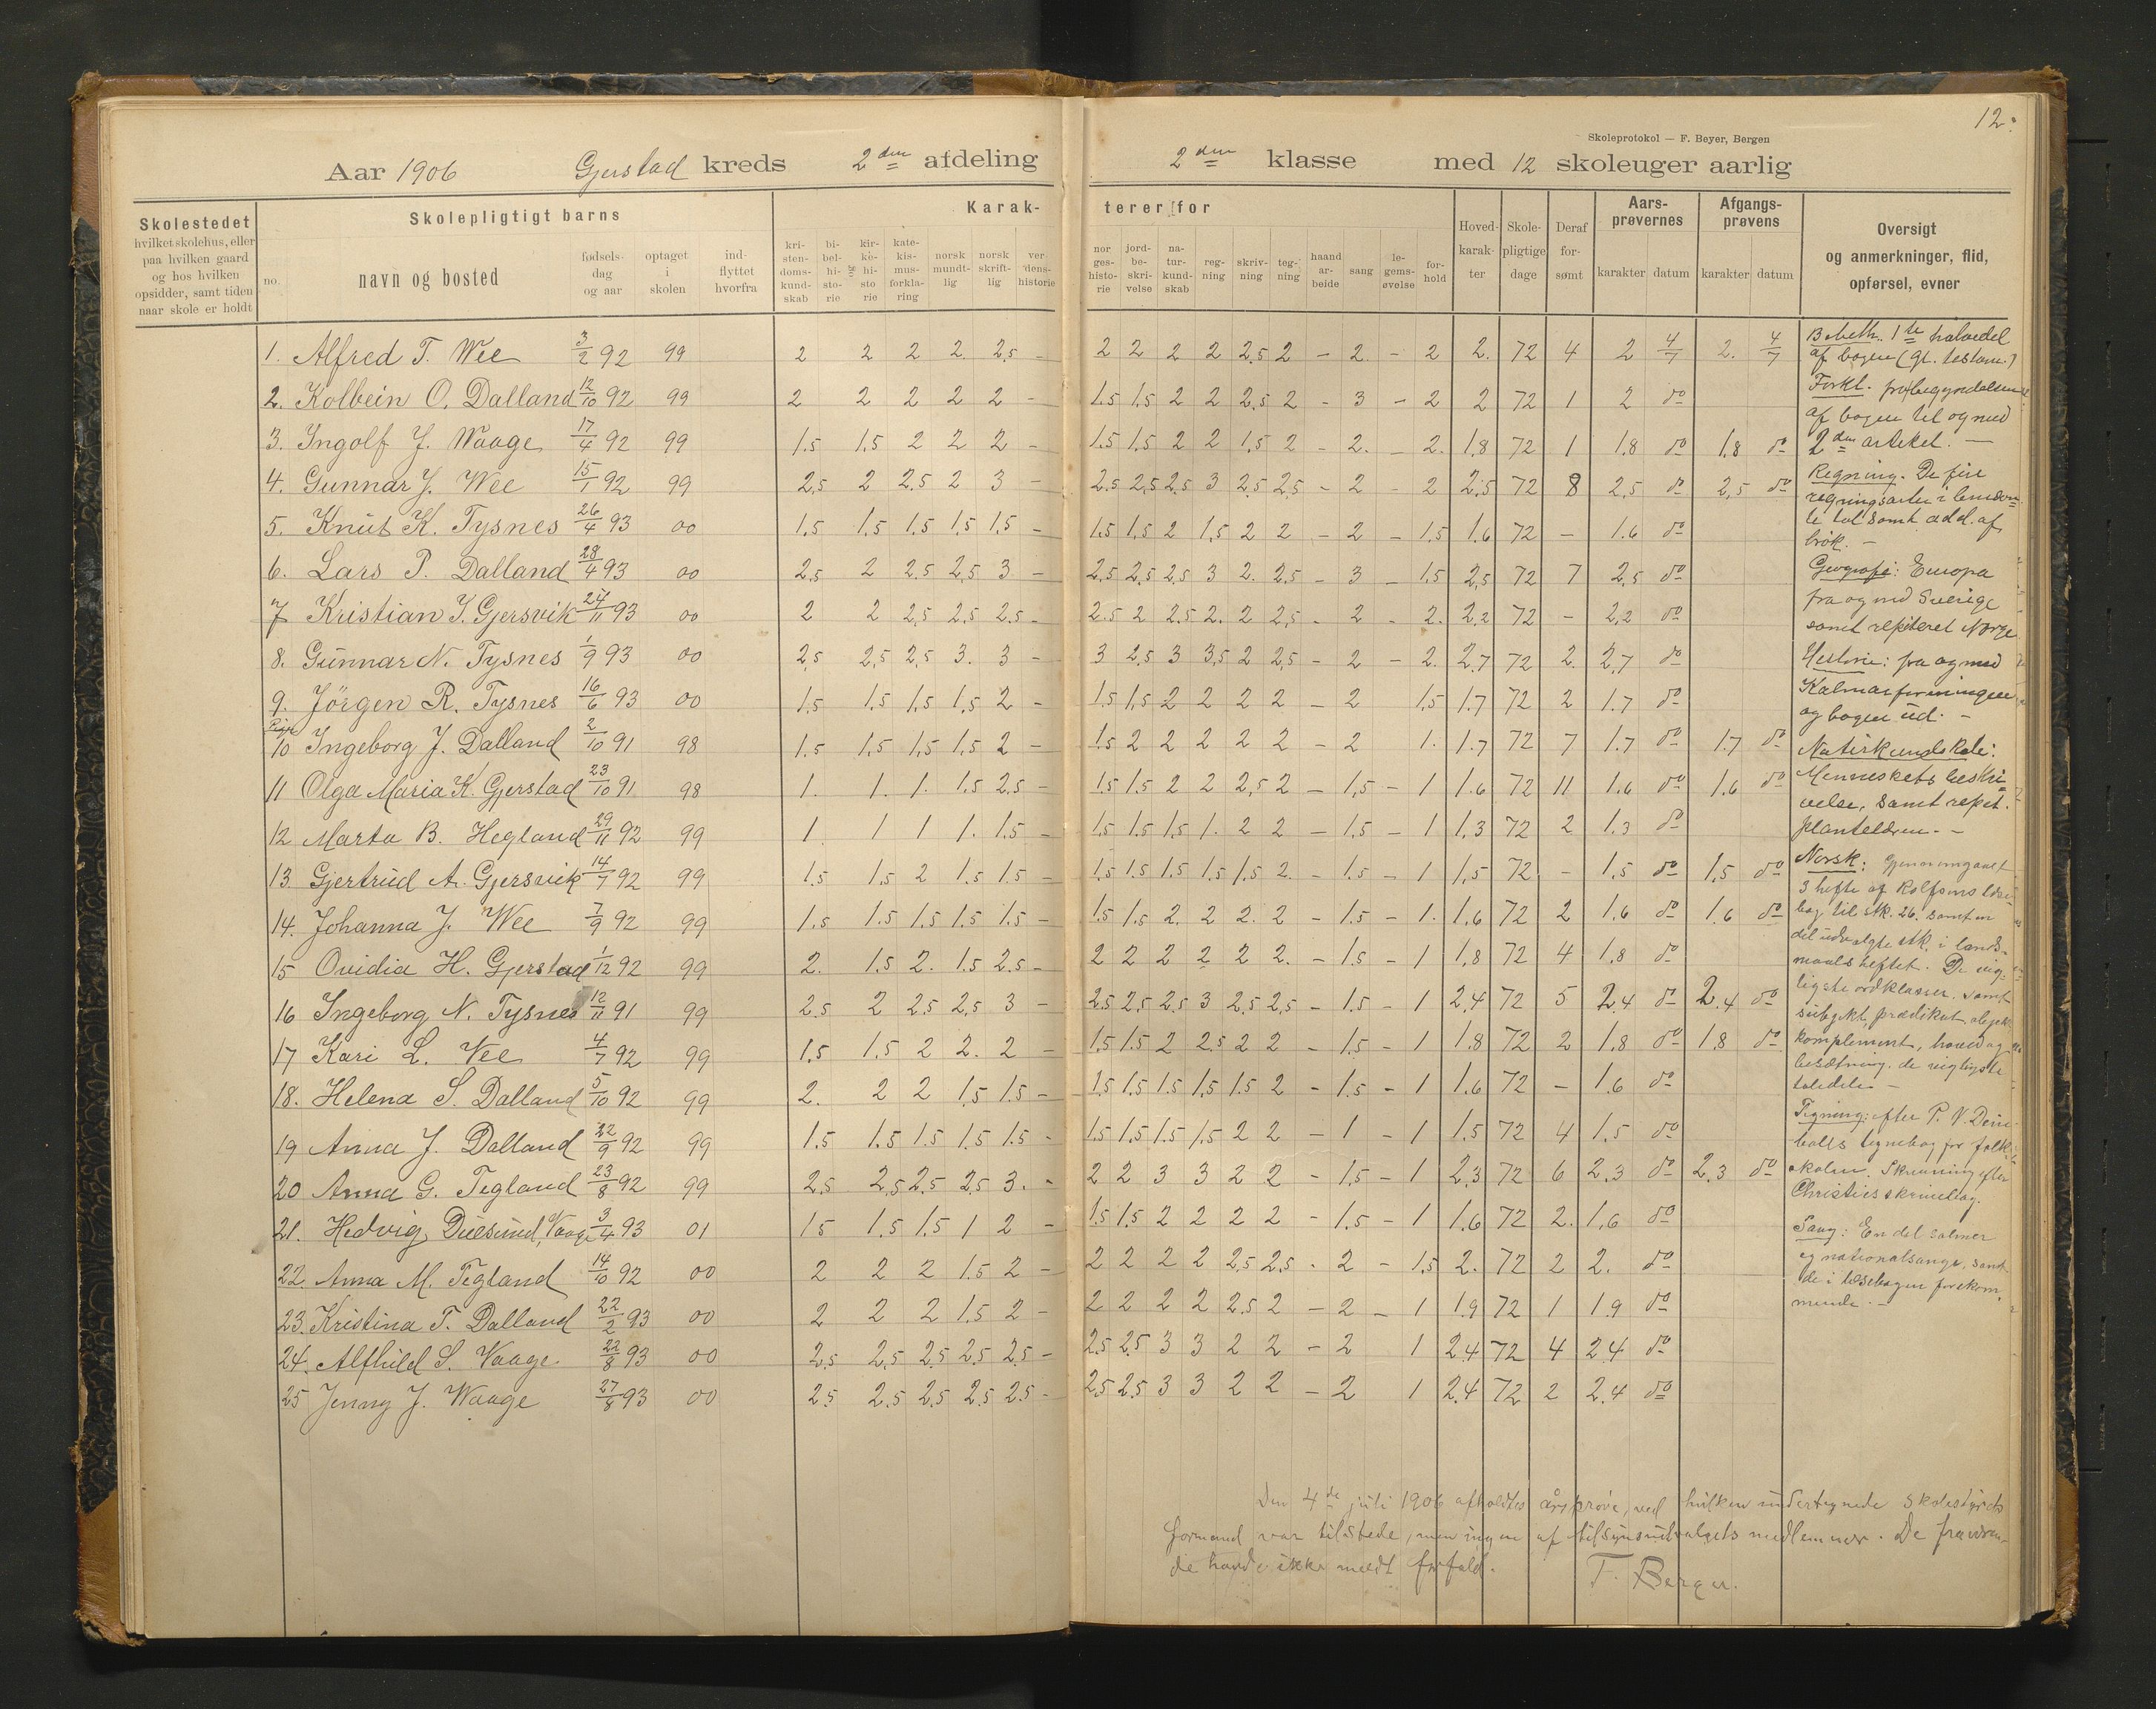 12.
Skoleprotokol — F. Beyer, Bergen
Aar 1906 Gjerstad kreds 2den afdeling 2den klasse med 12 skoleuger aarlig
Skolestedet hvilket skolehus, eller paa hvilken gaard og hos hvilken opsidder, samt tiden naar skole er holdt
Skolepligtigt barns
no. navn og bosted fødselsdag og aar optaget i skolen indflyttet hvorfra
Karakterer for
kristendomskundskab bibelhistorie og kirkehistorie katekismusforklaring norsk mundtlig norsk skriftlig verdenshistorie norgeshistorie jordbeskrivelse naturkundskab regning skrivning tegning haandarbeide sang legemsøvelse forhold
Hovedkarakter Skolepligtige dage Deraf forsømt
Aarsprøvernes karakter datum
Afgangsprøvens karakter datum
Oversigt og anmerkninger, flid, opførsel, evner
1. Alfred T. Wee 3/2 92 99 2 2 2 2 2,5 - 2 2 2 2 2,5 2 - 2 - 2 2. 72 4 2 4/7 2. 4/7
2. Kolbein O. Dalland 12/10 92 99 2 2 2 2 2 - 1.5 1,5 2 2 2,5 2 - 3 - 2 2 72 1 2 do
3. Ingolf J. Waage 17/4 92 99 1.5 1.5 2 2 2 - 1.5 1.5 2 2 1.5 2 - 2. - 2. 1,8 72 1 1,8 do 1,8 do
4. Gunnar J. Wee 15/1 92 99 2,5 2 2.5 2 3 - 2.5 2,5 2,5 3 2,5 2,5 - 2 - 2 2,5 72 8 2,5 do 2,5 do
5. Knut K. Tysnes 26/4 93 00 1.5 1.5 1.5 1.5 1.5 - 1.5 1.5 2 1,5 2 2 - 2 - 1,5 1.6 72 - 1.6 do
6. Lars P. Dalland 28/4 93 00 2,5 2 2.5 2,5 3 - 2,5 2,5 2,5 3 2. 2,5 - 3 - 1.5 2,5 72 7 2,5 do
7 Kristian I. Gjersvik 24/11 93 00 2 2 2,5 2.5 2.5 - 2.5 2 2.5 2. 2 2,5 - 2 - 2. 2,2 72 - 2,2 do
8. Gunnar N. Tysnes 1/9 93 00 2,5 2,5 2,5 3. 3 - 3 2,5 3 3,5 2 2,5 - 2 - 2. 2.7 72 2. 2,7 do
9. Jörgen R. Tysnes 16/6 93 00 1.5 1.5 1,5 1,5 2 - 1.5 1,5 2 2 2 2 - 2 1,5 1.7 72 2 1.7 do
10 Ingeborg J. Dalland 2/10 91 98 1.5 1,5 1,5 1.5 2 - 1.5 2 2 2 2 2 - 2 1. 1.7 72 7 1.7 do 1.7 do
11 Olga Maria K. Gjerstad 23/10 91 98 1. 1. 1. 1.5 2.5 - 1.5 1.5 2 2 2,5 2 - 1,5 - 1 1.6 72 11 1.6 do 1.6 do
12 Marta B. Hegland 29/11 92 99 1 1 1 1. 1.5 - 1.5 1.5 1,5 1. 2 2 - 1.5 - 1 1,3 72 2 1.3 do
13. Gjertrud A. Gjersvik 14/7 92 99 1.5 1,5 2 1.5 1.5 - 1.5 1.5 1.5 1.5 1.5 2. - 1.5 - 1 1,5 72 - 1,5 do 1,5 do
14. Johanna J. Wee 7/9 92 99 1.5 1.5 1.5 1.5 1.5 - 1.5 1.5 2. 2 2. 2 - 1.5 - 1. 1.6 72 2 1.6 do 1.6 do
15 Ovidia H. Gjerstad 1/12 92 99 2. 1.5 2. 1.5 2.5 - 2 2 2 2 2 2. - 1.5 - 1 1,8 72 4 1.8 do
16 Ingeborg N. Tysnes 12/11 91 99 2.5 2 2.5 2,5 3 - 2,5 2,5 2,5 3 2,5 2,5 - 1.5 - 1 2.4 72 5 2.4 do 2.4 do
17 Kari L. Vee 4/7 92 99 1.5 1.5 2 2. 2 - 1.5 1.5 2 2.5 2 2 - 1.5 - 1 1.8 72 2 1.8 do 1.8 do
18. Helena S. Dalland 5/10 92 99 2. 2 2 1.5 1.5 - 1.5 1.5 1.5 1,5 1.5 2 - 1.5 - 1 1.6 72 - 1.6 do
19 Anna J. Dalland 22/9 92 99 1.5 1.5 1.5 1.5 1.5 - 1.5 1.5 1.5 1,5 2 2 - 1 - 1 1.5 72 4 1.5 do
20 Anna G. Tegland 23/8 92 99 2.5 2,5 2.5 2,5 3. - 2 2 3 3 2 2 - 1.5 - 1 2.3 72 6 2.3 do 2.3 do
21. Hedvig Duesund, Vaage 3/4 93 01 1.5 1.5 1.5 1 2 - 1.5 1.5 2 2 2 2 - 1.5 - 1 1.6 72 2. 1.6 do
22. Anna M. Tegland 14/10 92 00 2 2 2 1.5 2 - 2 2 2 2 2,5 2,5 - 2 - 1.5 2. 72 2 2. do
23. Kristina T. Dalland 22/2 93 00 2 2 2 1.5 2 - 2 2 2 2 2.5 2 - 2 - 1 1.9 72 1 1.9 do
24. Alfhild S. Vaage. 22/8 93 00 2.5 2,5 2.5 2.5 2.5 - 2.5 2.5 3 3 2 2 - 2 1 2.4 72 4 2.4 do
25 Jenny J. Waage 27/8 93 00 2.5 2.5 2.5 2.5 2.5 - 2.5 2.5 3 3 2 2 - 2 1 2.4 72 2 2.4 do
1te halvdel
af bogen (gl. testam.)
Forkl. fra begyndelsen
af bogen til og med
2den artikel. —
Regning. De fire
regningsarter i
tal samt add. af
brök. —
Geografi: Europa
fra og med Sverige
samt repiteret Norge
Historie: fra og med
Kalmarforeningen
og bogen ud. —
Naturkundskab:
Menneskets beskri
velse, samt repet.
plantelæren. —
Norsk: Gjennemgaaet
3 hefte af Rolfsens læse
bog til stk. 26. samt en
del udvalgte stk. i lands-
maalsheftet. De vig-
tigste ordklasser. samt
subjekt, prædikat, objekt
komplement, hoved og
bisætning. de vigtigste
taledele —
Tegning: efter P. V.
tegnebog for folke
skolen. Skrivning efter
Christies skrivebog.
Sang: En del salmer
og nationalsange, samt
de i læsebogen forekom-
mende. —
Den 4de juli 1906 afholdtes årsprøve, ved hvilken undertegnede skolestyrets
formand var tilstede, men ingen af tilsynsudvalgets medlemmer. De fraværen-
de havde ikke meldt forfald. T. Berger.